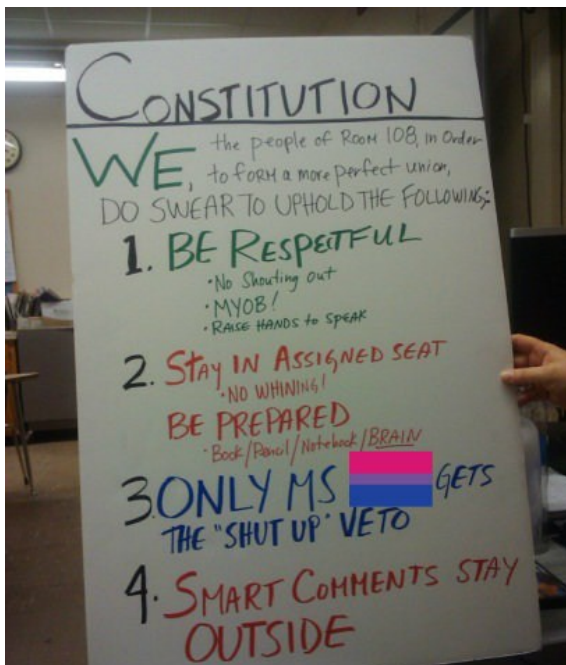 CONSTITUTION
WE, the people of Room 108, in Order
to form a more perfect union,
DO SWEAR TO UPHOLD THE FOLLOWING;
1. BE RESPECTFUL
• No Shouting out
• MYOB!
• RAISE HANDS to SPEAK
2. STAY IN ASSIGNED SEAT
• NO WHINING!
BE PREPARED
• Book/Pencil/Notebook/BRAIN
3. ONLY MS GETS
THE "SHUT UP" VETO
4. SMART COMMENTS STAY
OUTSIDE